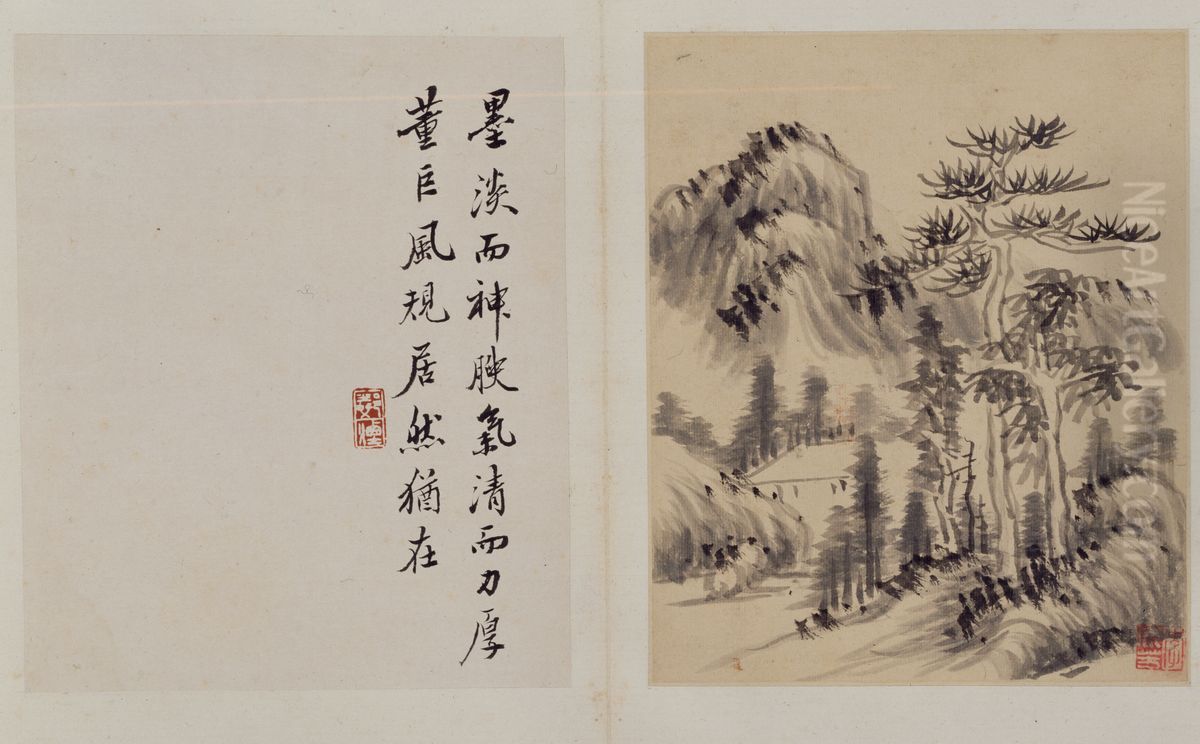 墨淡而神腴氣清而力厚
董巨風規居然猶在
NiceArtGallery.com